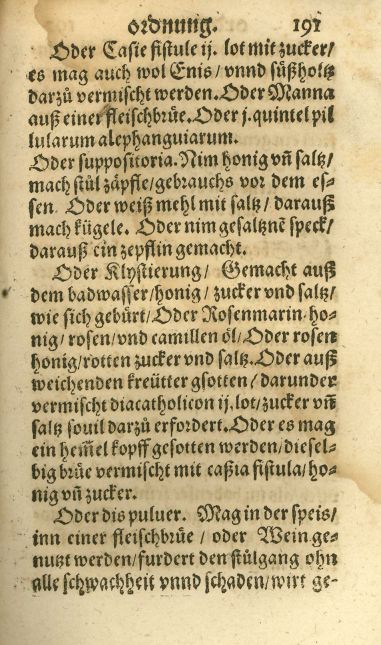 ordnung. 191
Oder Casie fistule ij. lot mit zucker/
es mag auch wol Enis/ vnnd süßholtz
darzů vermischt werden. Oder Manna
auß einer fleischbrüe. Oder j. quintel pil
lularum alephanguiarum.
Oder suppositoria. Nim honig vñ saltz/
mach stůl zäpfle/gebrauchs vor dem es-
sen. Oder weiß mehl mit saltz/ darauß
mach kügele. Oder nim gesaltznẽ speck/
darauß ein zepflin gemacht.
Oder Klystierung/ Gemacht auß
dem badwasser/honig/ zucker vnd saltz/
wie sich gebürt/Oder Rosenmarin-ho-
nig/rosen/vnd camillen öl/Oder rosen
honig/rotten zucker vnd saltz. Oder auß
weichenden kreütter gsotten/darunder
vermischt diacatholicon ij. lot/zucker vñ
saltz souil darzů erfordert. Oder es mag
ein hem̃el kopff gesotten werden/diesel-
big brüe vermischt mit caßia fistula/ho-
nig vñ zucker.
Oder dis puluer. Mag in der speis/
inn einer fleischbrüe/ oder Wein ge-
nutzt werden/furdert den stülgang ohn
alle schwachheit vnnd schaden/wirt ge-